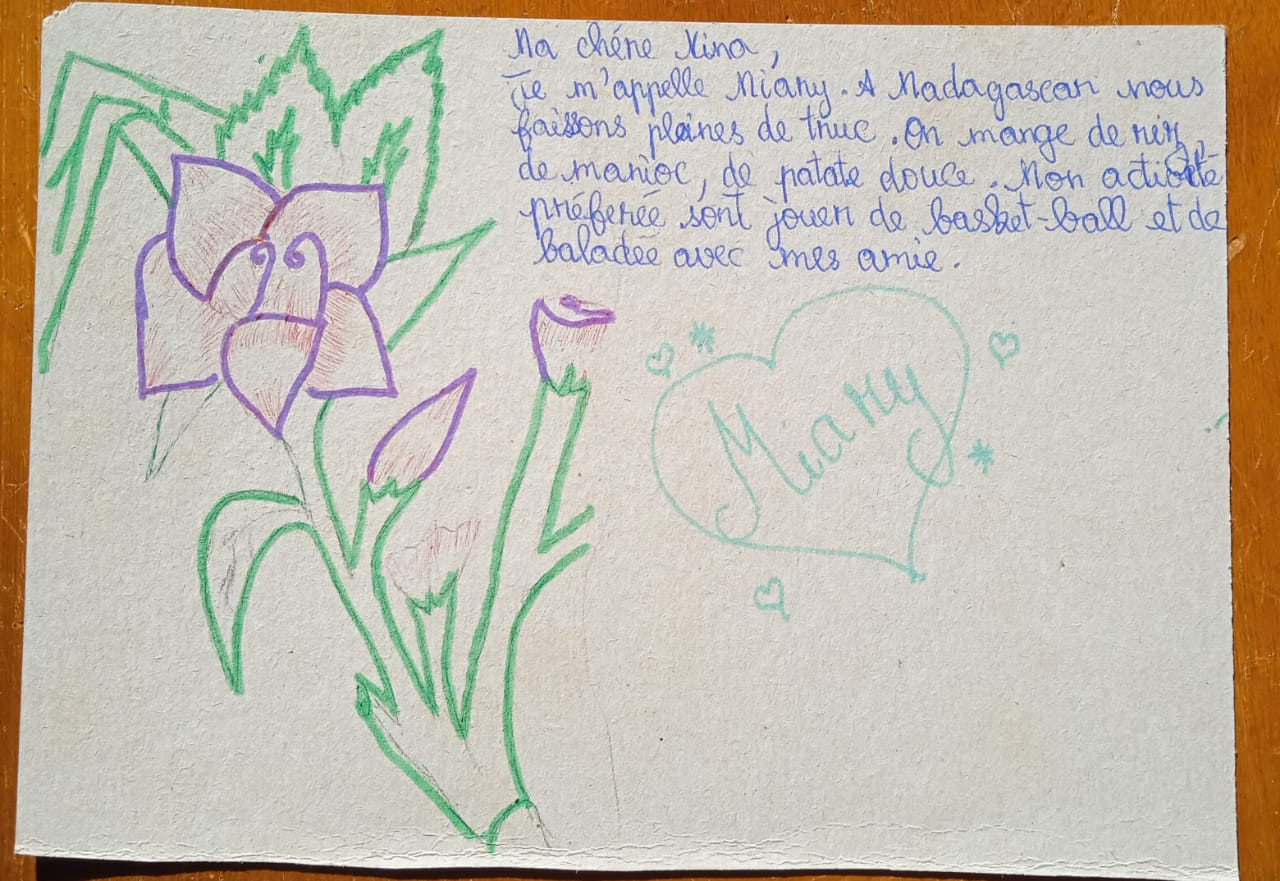 Ma chére Nina,
Je m'appelle Miany. A Madagascar nous
faissons pleines de truc. On mange de riz,
de manioc, de patate douce. Mon activité
préferée sont jouer de basket-ball et de
baladée avec mes amie.
Miany